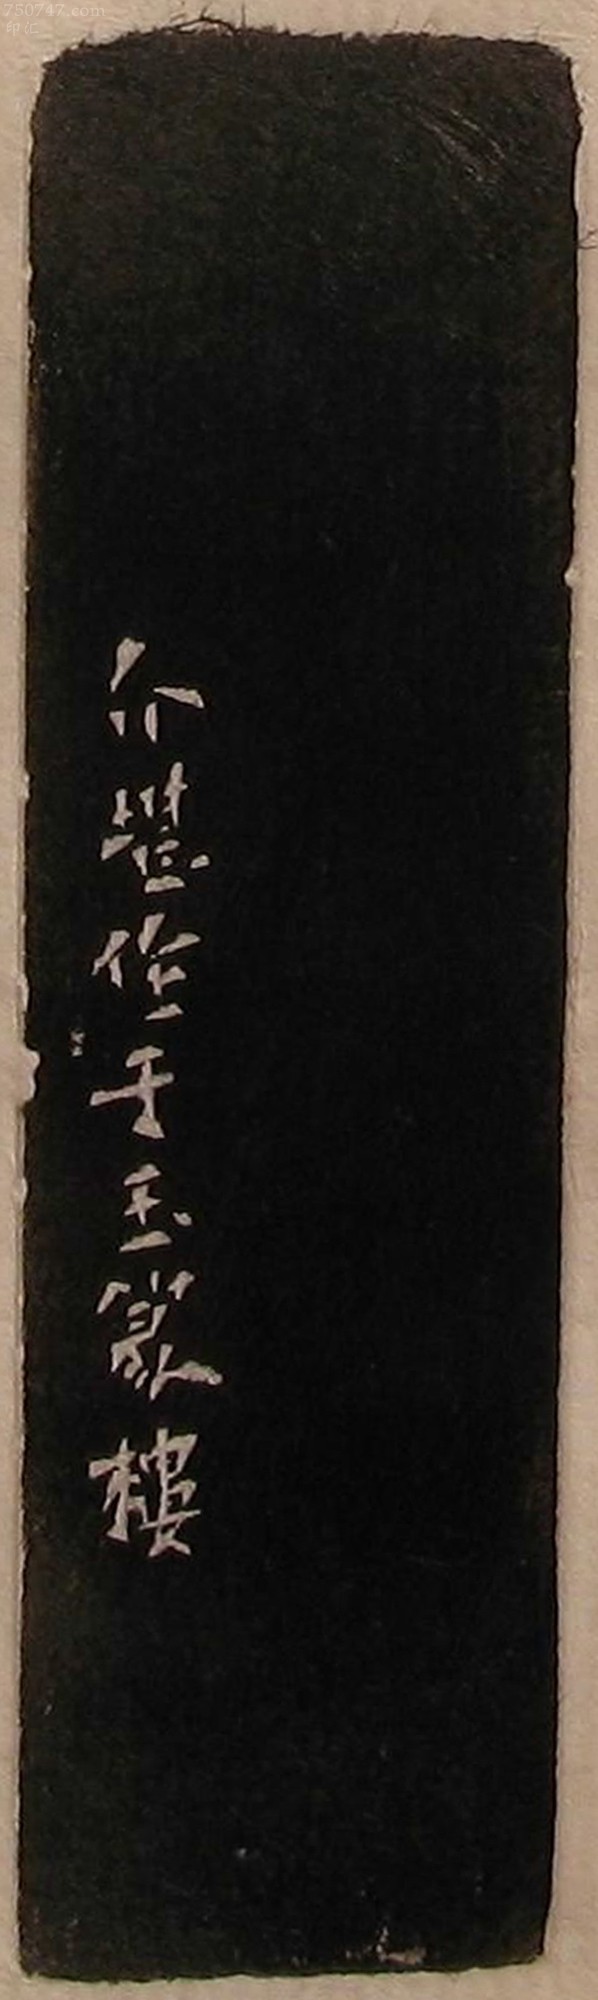 750747.com
印汇
介堪作于玉篆樓